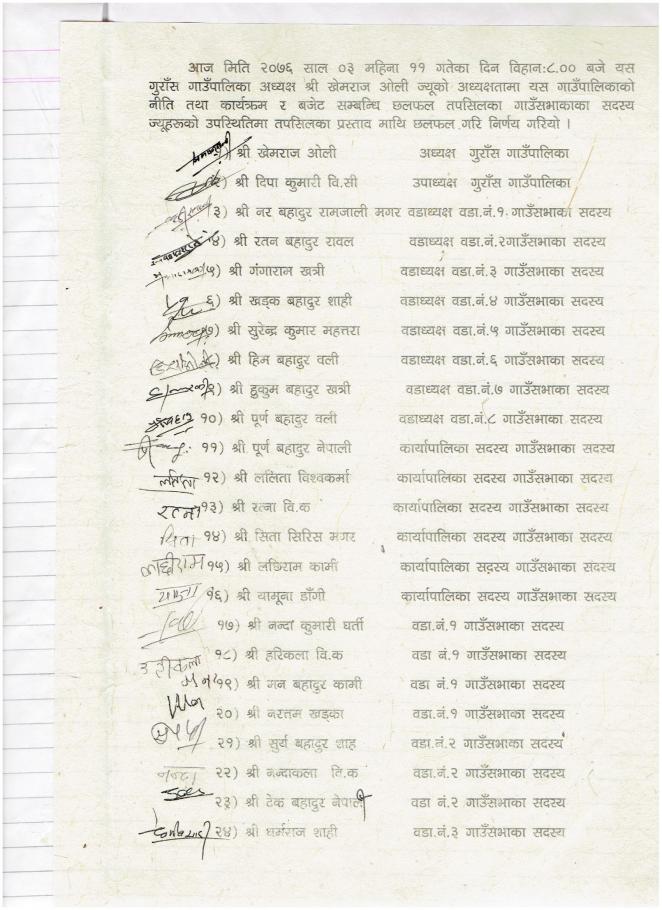 आज मिति २०७६ साल ०३ महिना ११ गतेका दिन विहान:८.०० बजे यस
गुराँस गाउँपालिका अध्यक्ष श्री खेमराज ओली ज्यूको अध्यक्षतामा यस गाउँपालिकाको
नीति तथा कार्यक्रम र बजेट सम्बन्धि छलफल तपसिलका गाउँसभाकाका सदस्य
ज्यूहरूको उपस्थितिमा तपसिलका प्रस्ताव माथि छलफल गरि निर्णय गरियो ।
१) श्री खेमराज ओली अध्यक्ष गुराँस गाउँपालिका
२) श्री दिपा कुमारी वि.सी उपाध्यक्ष गुराँस गाउँपालिका
३) श्री नर बहादुर रामजाली मगर वडाध्यक्ष वडा.नं.१ गाउँसभाका सदस्य
४) श्री रतन बहादुर रावल वडाध्यक्ष वडा.नं.२गाउँसभाका सदस्य
५) श्री गंगाराम खत्री वडाध्यक्ष वडा.नं.३ गाउँसभाका सदस्य
६) श्री खड्क बहादुर शाही वडाध्यक्ष वडा.नं.४ गाउँसभाका सदस्य
७) श्री सुरेन्द्र कुमार महत्तरा वडाध्यक्ष वडा.नं.५ गाउँसभाका सदस्य
श्री हिम बहादुर वली वडाध्यक्ष वडा.नं.६ गाउँसभाका सदस्य
९) श्री हुकुम बहादुर खत्री वडाध्यक्ष वडा.नं.७ गाउँसभाका सदस्य
१०) श्री पूर्ण बहादुर वली वडाध्यक्ष वडा.नं.८ गाउँसभाका सदस्य
११) श्री पूर्ण बहादुर नेपाली कार्यापालिका सदस्य गाउँसभाका सदस्य
ललिता १२) श्री ललिता विश्वकर्मा कार्यापालिका सदस्य गाउँसभाका सदस्य
रत्ना १३) श्री रत्ना वि.क कार्यापालिका सदस्य गाउँसभाका सदस्य
सिता १४) श्री सिता सिरिस मगर कार्यापालिका सदस्य गाउँसभाका सदस्य
१५) श्री लछिराम कामी कार्यापालिका सदस्य गाउँसभाका सदस्य
१६) श्री यामूना डाँगी कार्यापालिका सदस्य गाउँसभाका सदस्य
१७) श्री नन्दा कुमारी घर्ती वडा.नं.१ गाउँसभाका सदस्य
१८) श्री हरिकला वि.क वडा नं.१ गाउँसभाका सदस्य
१९) श्री मन बहादुर कामी वडा नं.१ गाउँसभाका सदस्य
२०) श्री नरत्तम खड्का वडा नं.१ गाउँसभाका सदस्य
२१) श्री सुर्य बहादुर शाह वडा.नं.२ गाउँसभाका सदस्य
नन्दा २२) श्री नन्दाकला वि.क वडा.नं.२ गाउँसभाका सदस्य
२३) श्री टेक बहादुर नेपाली वडा नं.२ गाउँसभाका सदस्य
२४) श्री धर्मराज शाही वडा.नं.३ गाउँसभाका सदस्य